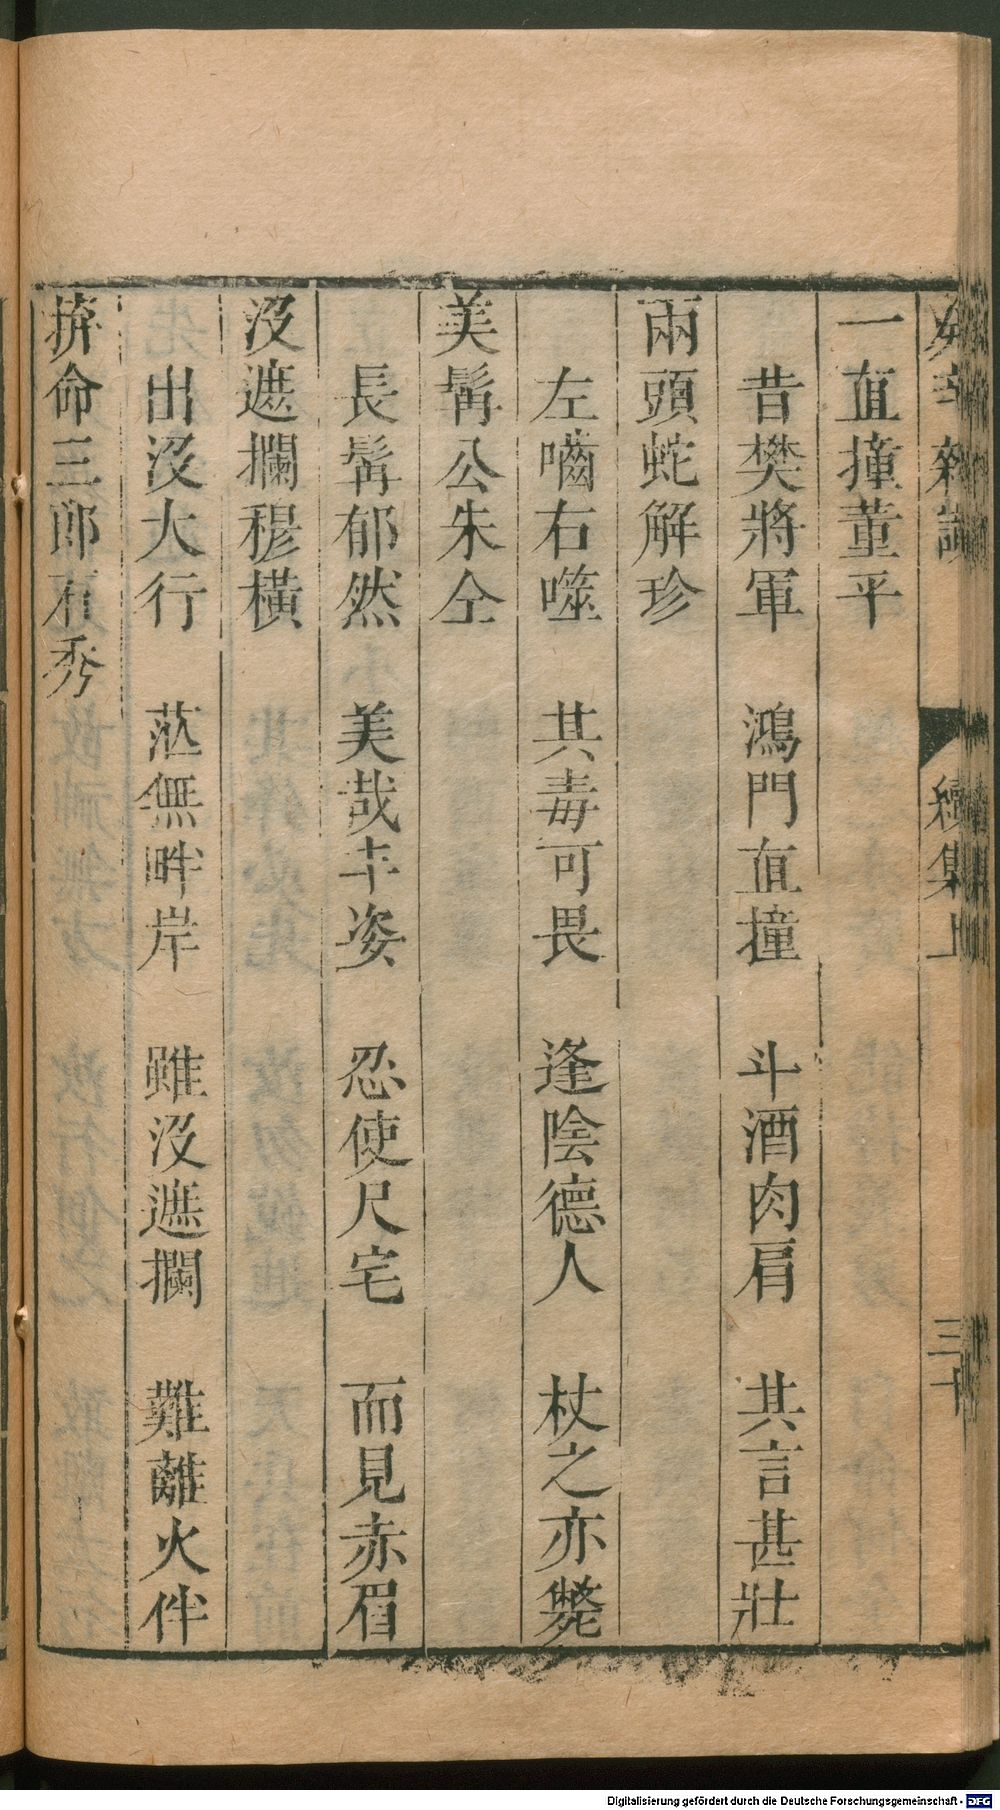 癸辛雜識 續集上 三十
一直撞董平
昔樊將軍 鴻門直撞 斗酒肉肩 其言甚壯
兩頭蛇解珍
左嚙右噬 其毒可畏 逢陰德人 杖之亦斃
美髯公朱仝
長髯郁然 美哉丰姿 忍使尺宅 而見赤眉
沒遮攔穆橫
出沒太行 茫無畔岸 雖沒遮攔 難離火伴
拚命三郎石秀
Digitalisierung gefördert durch die Deutsche Forschungsgemeinschaft - DFG